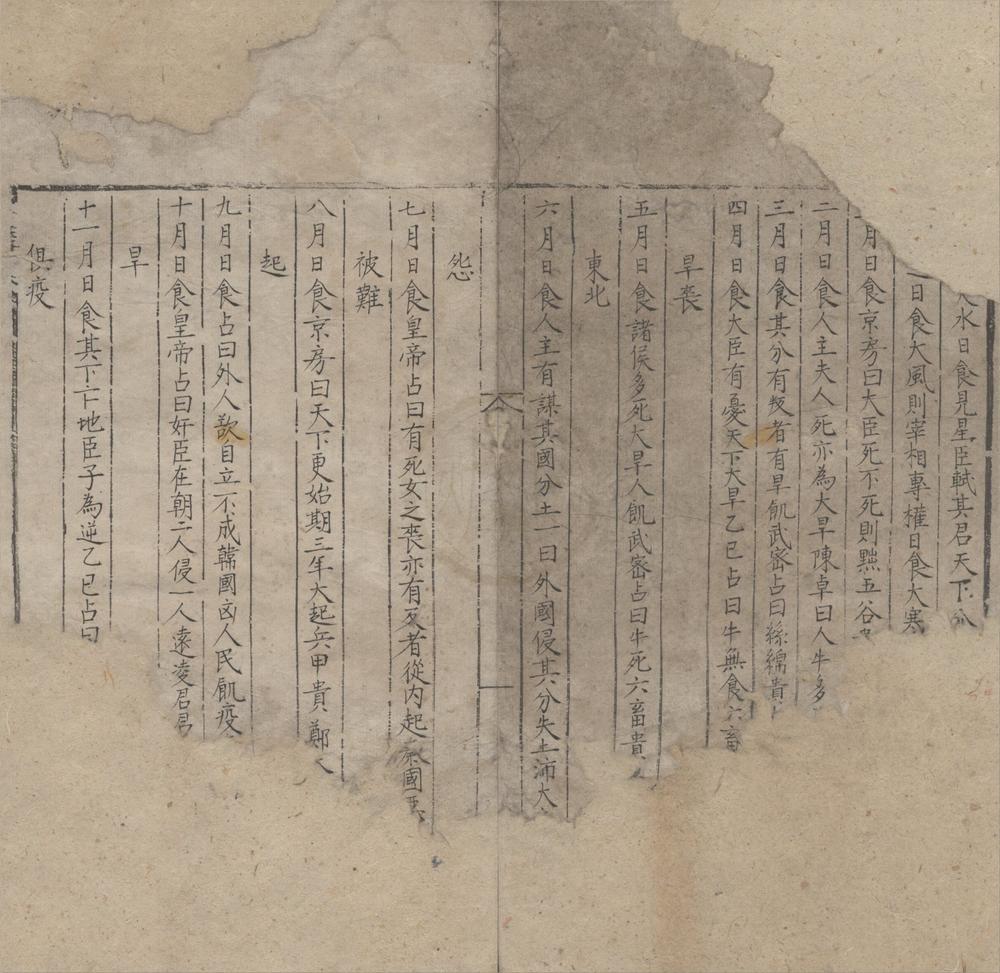 水日食見星臣弒其君天下分
日食大風則宰相專權日食大寒
月日食京房曰大臣死不死則黜五谷
二月日食人主夫人死亦為大旱陳卓曰人牛多
三月日食其分有叛者有旱飢武密占曰絲綿貴
四月日食大臣有憂天下大旱乙巳占曰牛無食六畜
旱喪
五月日食諸侯多死大旱人飢武密占曰牛死六畜貴
東北
六月日食人主有謀其國分土一曰外國侵其分失土沛大
怨
七月日食皇帝占曰有死女之喪亦有反者從内起秦國
被難
八月日食京房曰天下更始期三年大起兵甲貴鄭
起
九月日食占曰外人欲自立不成韓國凶人民飢疫
十月日食皇帝占曰奸臣在朝二人侵一人遠凌君
旱
十一月日食其下亡地臣子為逆乙巳占曰
俱疫